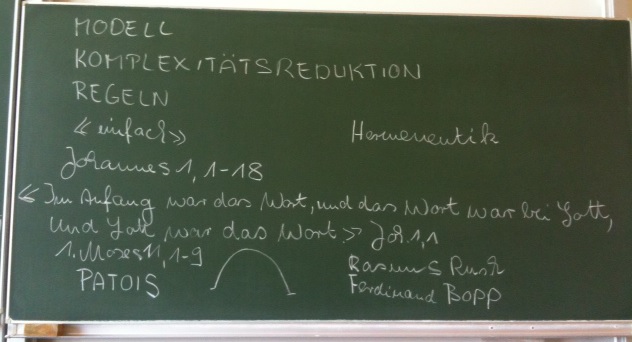 MODELL
KOMPLEXITÄTSREDUKTION
REGELN
«einfach» Hermeneutik
Johannes 1, 1-18
«Im Anfang war das Wort, und das Wort war bei Gott,
und Gott war das Wort» Joh 1,1
1. Moses 11, 1-9
PATOIS
Rasmus Rusk
Ferdinand BOPP